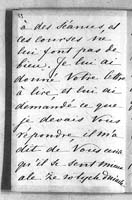 à des séances, et
ces courses ne
lui font pas de
bien. Je lui ai
donné Votre lettre
à lire et lui ai
demandé ce que
je devais Vous
répondre il m'a
dit de Vous
qu'il se sent